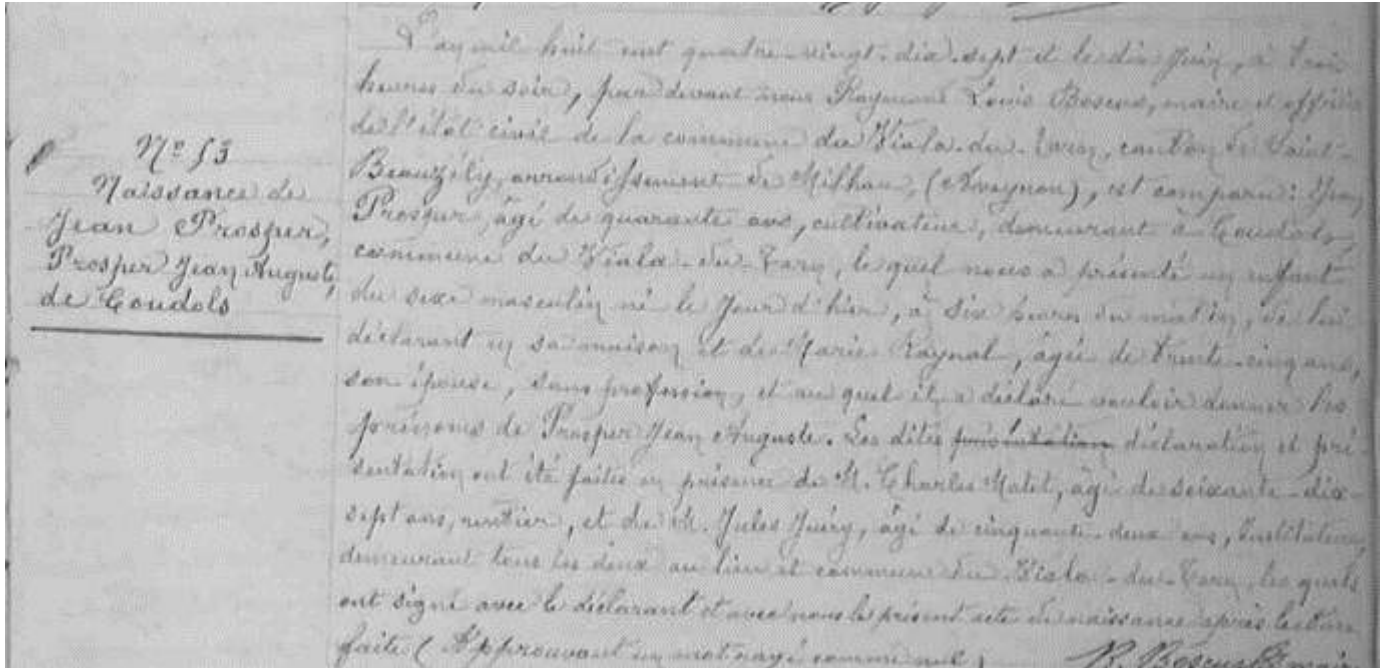 Nº 53
Naissance de
Jean Prosper,
Prosper Jean Auguste,
de Coudols
L'an mil huit cent quatre-vingt-dix-sept et le dix Juin, à trois
heures du soir, par devant nous Raymond Louis Boscus, maire et officier
de l'état civil de la commune du Viala-du-Tarn, canton de Saint-
Beauzély, arrondissement de Milhau, (Aveyron), est comparu: Jean
Prosper, âgé de quarante ans, cultivateur, demeurant à Coudols,
commune du Viala-du-Tarn, lequel nous a présenté un enfant
du sexe masculin né le jour d'hier, à six heures du matin, de lui
déclarant en sa maison et de Marie Raynal, âgée de trente-cinq ans,
son épouse, sans profession, et auquel il a déclaré vouloir donner les
prénoms de Prosper Jean Auguste. Les dites présentation déclaration et pré-
sentation ont été faites en présence de M. Charles Matet, âgé de soixante-dix-
sept ans, rentier, et de M. Jules Juéry, âgé de cinquante-deux ans, Instituteur,
demeurant tous les deux au lieu et commune du Viala-du-Tarn, lesquels
ont signé avec le déclarant et avec nous le présent acte de naissance après lecture
faite (Approuvant un mot rayé comme nul)